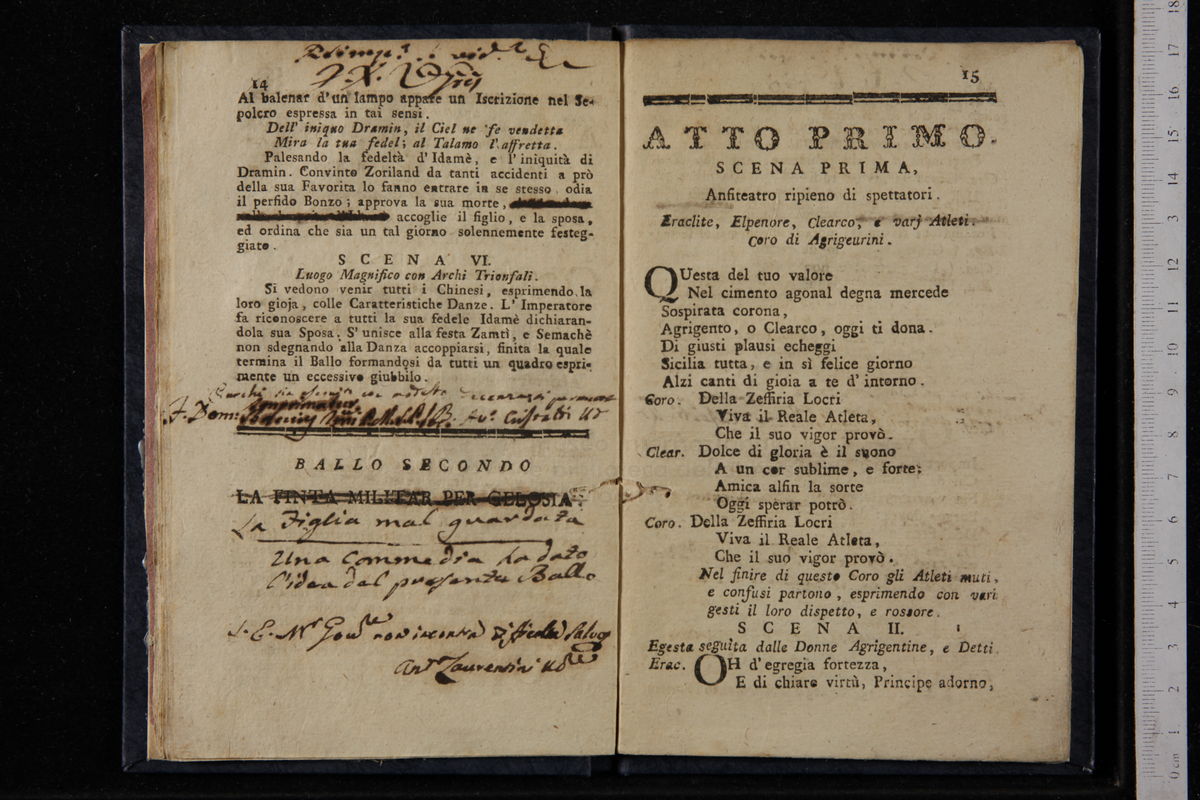 14
Al balenar d'un lampo appare un Iscrizione nel Se-
polcro espressa in tai sensi.
Dell' iniquo Dramin, il Ciel ne fe vendetta
Mira la tua fedel; al Talamo l'affretta.
Palesando la fedeltà d'Idamè, e l'iniquità di
Dramin. Convinto Zoriland da tanti accidenti a prò
della sua Favorita lo fanno entrare in se stesso, odia
il perfido Bonzo; approva la sua morte,
accoglie il figlio, e la sposa,
ed ordina che sia un tal giorno solennemente festeg-
giato.
SCENA VI.
Luogo Magnifico con Archi Trionfali.
Si vedono venir tutti i Chinesi, esprimendo la
loro gioja, colle Caratteristiche Danze. L'Imperatore
fa riconoscere a tutti la sua fedele Idamè dichiaran-
dola sua Sposa. S'unisce alla festa Zamtì, e Semachè
non sdegnando alla Danza accoppiarsi, finita la quale
termina il Ballo formandosi da tutti un quadro espri-
mente un eccessivo giubbilo.
BALLO SECONDO
LA FINTA MILITAR PER GELOSIA.
La Figlia mal guardata
Una Commedia ha dato
l'idea del presente Ballo
15
ATTO PRIMO.
SCENA PRIMA,
Anfiteatro ripieno di spettatori.
Eraclite, Elpenore, Clearco, e varj Atleti.
Coro di Agrigeurini.
QUesta del tuo valore
Nel cimento agonal degna mercede
Sospirata corona,
Agrigento, o Clearco, oggi ti dona.
Di giusti plausi echeggi
Sicilia tutta, e in sì felice giorno
Alzi canti di gioia a te d'intorno.
Coro. Della Zeffiria Locri
Viva il Reale Atleta,
Che il suo vigor provò.
Clear. Dolce di gloria è il suono
A un cor sublime, e forte;
Amica alfin la sorte
Oggi sperar potrò.
Coro. Della Zeffiria Locri
Viva il Reale Atleta,
Che il suo vigor provò.
Nel finire di questo Coro gli Atleti muti,
e confusi partono, esprimendo con vari
gesti il loro dispetto, e rossore.
SCENA II.
Egesta seguita dalle Donne Agrigentine, e Detti
Erac. OH d'egregia fortezza,
E di chiare virtù, Principe adorno,